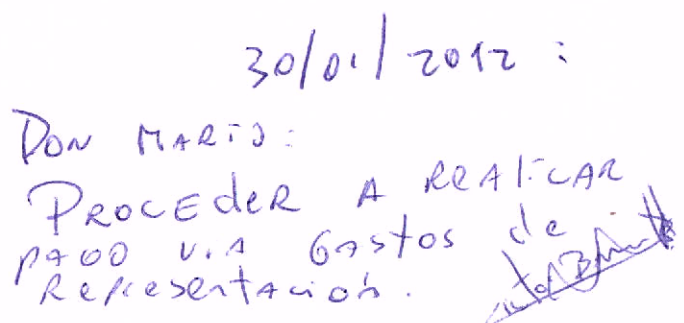 30/01/2012:
Don Mario:
Proceder a realicar
pago via Gastos de
Representación.